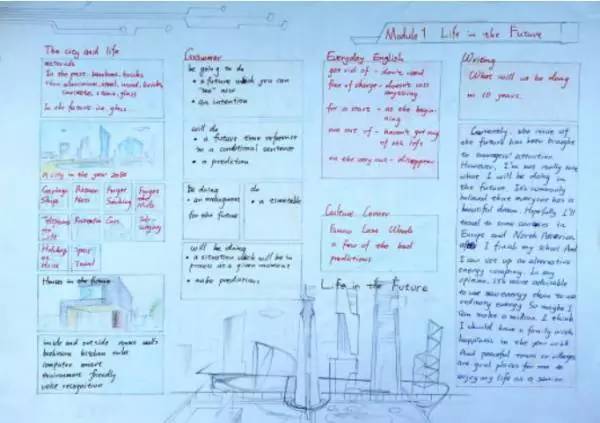 Module 1 Life in the Future
The city and life
materials
In the past: bamboo, bricks
In the future: glass
A city in the year 2050
Garbage Ships
Force Smoking
Telephone for Life
Recreation
Cars
Holiday at Home
Space Travel
Houses in the future
inside and outside
computer
environment friendly
voice recognition
Grammar
be going to do
• a future which you can
"see" now
• an intention
will do
• a future time reference
in a conditional sentence
• a prediction
Be doing
• an arrangement
for the future
do
• a timetable
will be doing
• a situation which will be in
process at a given moment
• safe predictions
Everyday English
get rid of - don't need
free of charge - doesn't cost
anything
for a start - at the begin-
ning
run out of - haven't got any
of sth left
on the way out - disappear
Culture Corner
Famous Last Words
a few of the bad
predictions
Life in the Future
Writing
What will you be doing
in 10 years.
Currently, the voice of
the future has been brought
to attention.
However, I'm not really sure
what I will be doing in
the future. It's commonly
believed that everyone has a
beautiful dream. Hopefully I'll
travel to some countries in
Europe and North America
after I finish my school. And
I can set up an alternative
energy company. In my
opinion, it's more advisable
to use new energy than to use
ordinary energy. So maybe I
can make a million. I think
I should have a family with
happiness in the year
And peaceful towns or villages
are good places for me to
enjoy my life as a senior